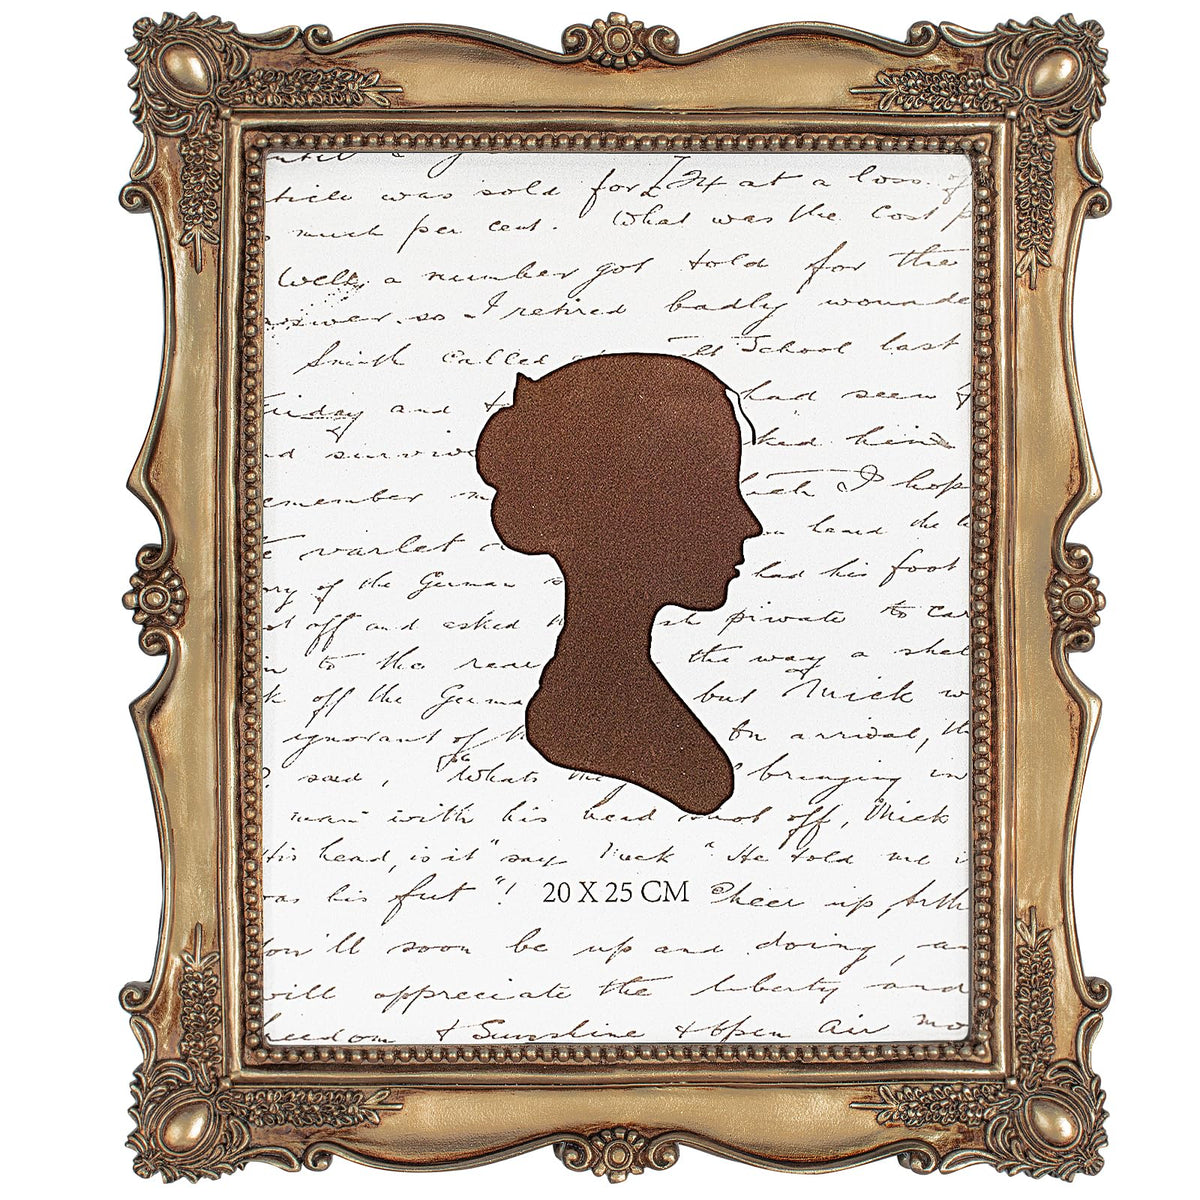 until
ticle was sold for £24 at a loss of
much per cent. What was the cost p
Well, a number got told for the
nswer. so I retired badly wounde
Smith called School last
Friday and had seen
d surviv ked him
emember m I hope
e varlet heard the
ry of the German had his foot
ot off and asked private to car
in to the rear the way a shel
k off the Germa but Mick w
ignorant of On arrival, th
said, "Whats bringing in
man with his head shot off, Mick
His head, is it "say He told me i
was his fut "! 20 X 25 CM Cheer up, Arth
You'll soon be up and doing, an
will appreciate the liberty and
eedom & Sunshine & Open Air mo